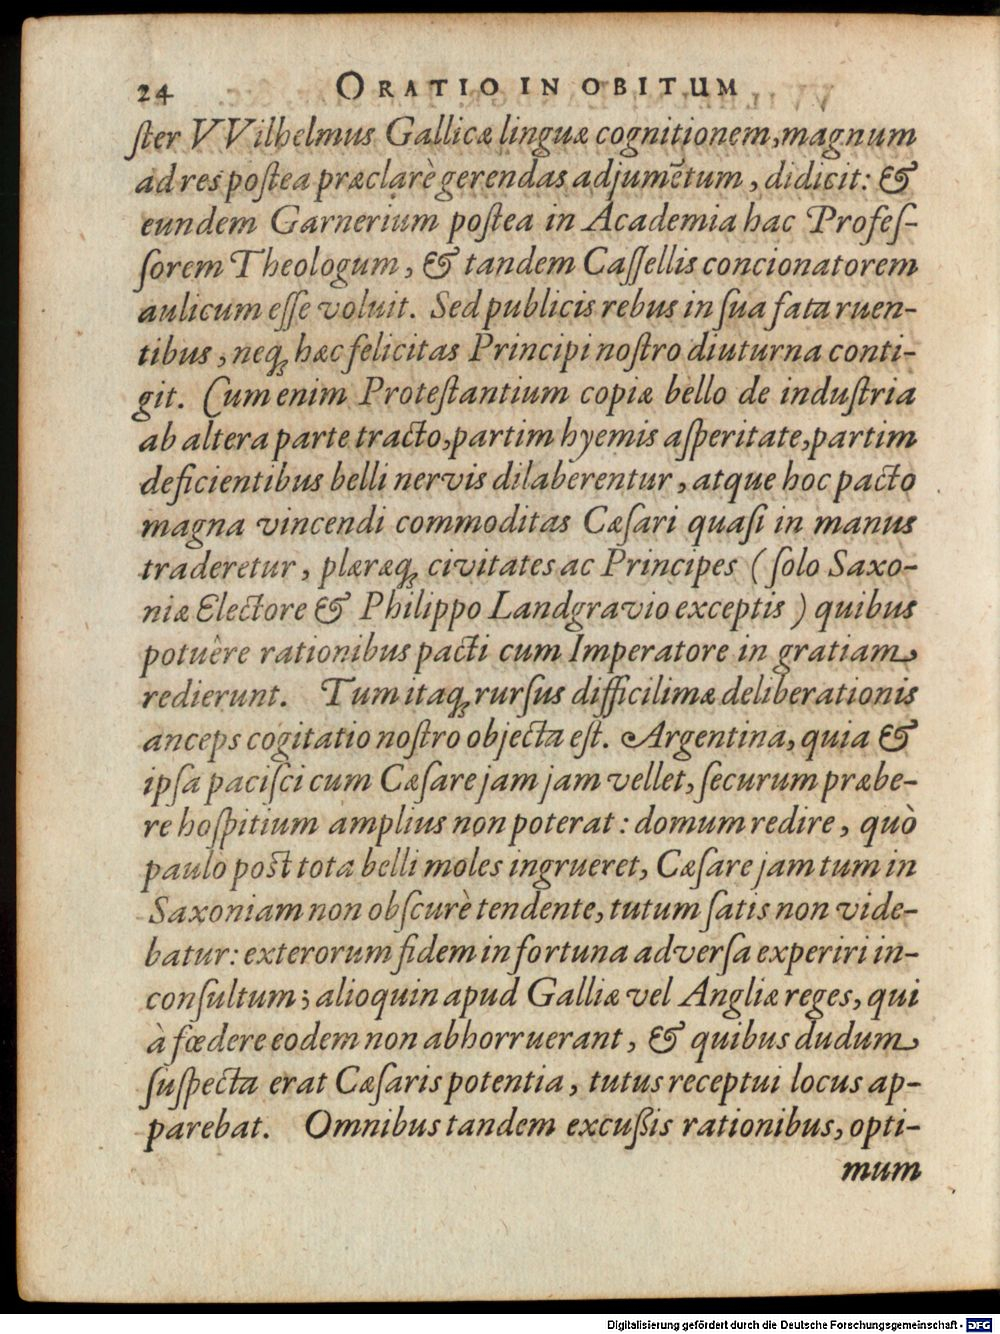 24 ORATIO IN OBITUM
ſter VVilhelmus Gallicæ linguæ cognitionem, magnum
ad res poſtea præclarè gerendas adjumẽtum, didicit: &
eundem Garnerium poſtea in Academia hac Profeſ-
ſorem Theologum, & tandem Caſſellis concionatorem
aulicum eſſe voluit. Sed publicis rebus in ſua fata ruen-
tibus, neqꝫ hæc felicitas Principi noſtro diuturna conti-
git. Cum enim Proteſtantium copiæ bello de induſtria
ab altera parte tracto, partim hyemis aſperitate, partim
deficientibus belli nervis dilaberentur, atque hoc pacto
magna vincendi commoditas Cæſari quaſi in manus
traderetur, plæræqꝫ civitates ac Principes (ſolo Saxo-
niæ Electore & Philippo Landgravio exceptis) quibus
potuêre rationibus pacti cum Imperatore in gratiam
redierunt. Tum itaqꝫ rurſus difficilimæ deliberationis
anceps cogitatio noſtro objecta eſt. Argentina, quia &
ipſa paciſci cum Cæſare jam jam vellet, ſecurum præbe-
re hoſpitium amplius non poterat: domum redire, quò
paulò pòſt tota belli moles ingrueret, Cæſare jam tum in
Saxoniam non obſcurè tendente, tutum ſatis non vide-
batur: exterorum fidem in fortuna adverſa experiri in-
conſultum; alioquin apud Galliæ vel Angliæ reges, qui
à fœdere eodem non abhorruerant, & quibus dudum
ſuſpecta erat Cæſaris potentia, tutus receptui locus ap-
parebat. Omnibus tandem excuſſis rationibus, opti-
mum
Digitalisierung gefördert durch die Deutsche Forschungsgemeinschaft - DFG